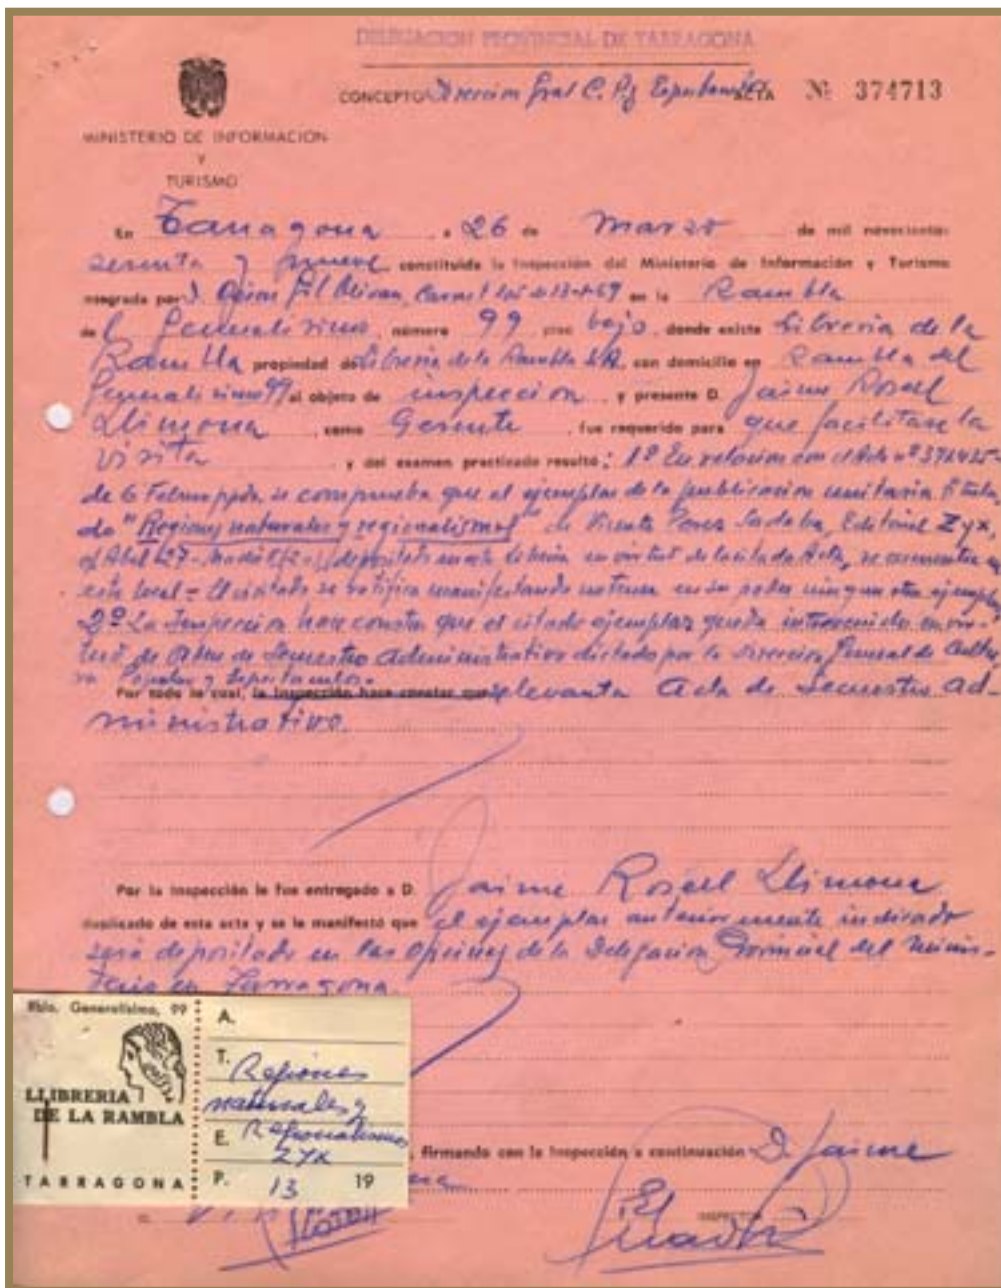 DELEGACION PROVINCIAL DE TARRAGONA
CONCEPTO Direccion Gral C. P. y Espectaculos ACTA Nº 374713
MINISTERIO DE INFORMACION
Y
TURISMO
En Tarragona a 26 de Marzo de mil novecientos
sesenta y nueve constituida la Inspección del Ministerio de Información y Turismo
integrada por D. Gil en la Rambla
del Generalisimo, número 99 piso bajo donde existe Libreria de la
Rambla propiedad de Libreria de la Rambla S.A. con domicilio en Rambla del
Generalisimo 99 al objeto de inspeccion y presente D. Jaime Rosell
Llimona, como Gerente, fue requerido para que facilitase la
visita y del examen practicado resultó: 1º En relacion con el Acta nº
de 6 Febrero ppdo, se comprueba que el ejemplar de la publicacion unitaria titula
do "Regiones naturales y regionalismos" de Vicente Perez Sadaba, Editorial Zyx,
depositado en esta libreria en virtud de la citada Acta, se encuentra en
este local = El visitado se ratifica manifestando no tener en su poder ningun otro ejemplar
2º La Inspeccion hace constar que el citado ejemplar queda intervenido en vir-
tud de Orden de Secuestro Administrativo dictado por la Direccion General de Cultu
ra Popular y Espectaculos.
Por todo lo cual, la Inspección hace constar que se levanta Acta de Secuestro Ad-
ministrativo.
Por la Inspección le fue entregado a D. Jaime Rosell Llimona
duplicado de esta acta y se le manifestó que el ejemplar anteriormente indicado
será depositado en las Oficinas de la Delegacion Provincial del Minis-
terio en Tarragona.
Rbla. Generalísimo, 99
LLIBRERIA
DE LA RAMBLA
TARRAGONA
A.
T. Regiones
naturales y
E. Regionalismos
ZYX
P. 13 19
, firmando con la Inspección a continuación D. Jaime
El
INSPECTOR